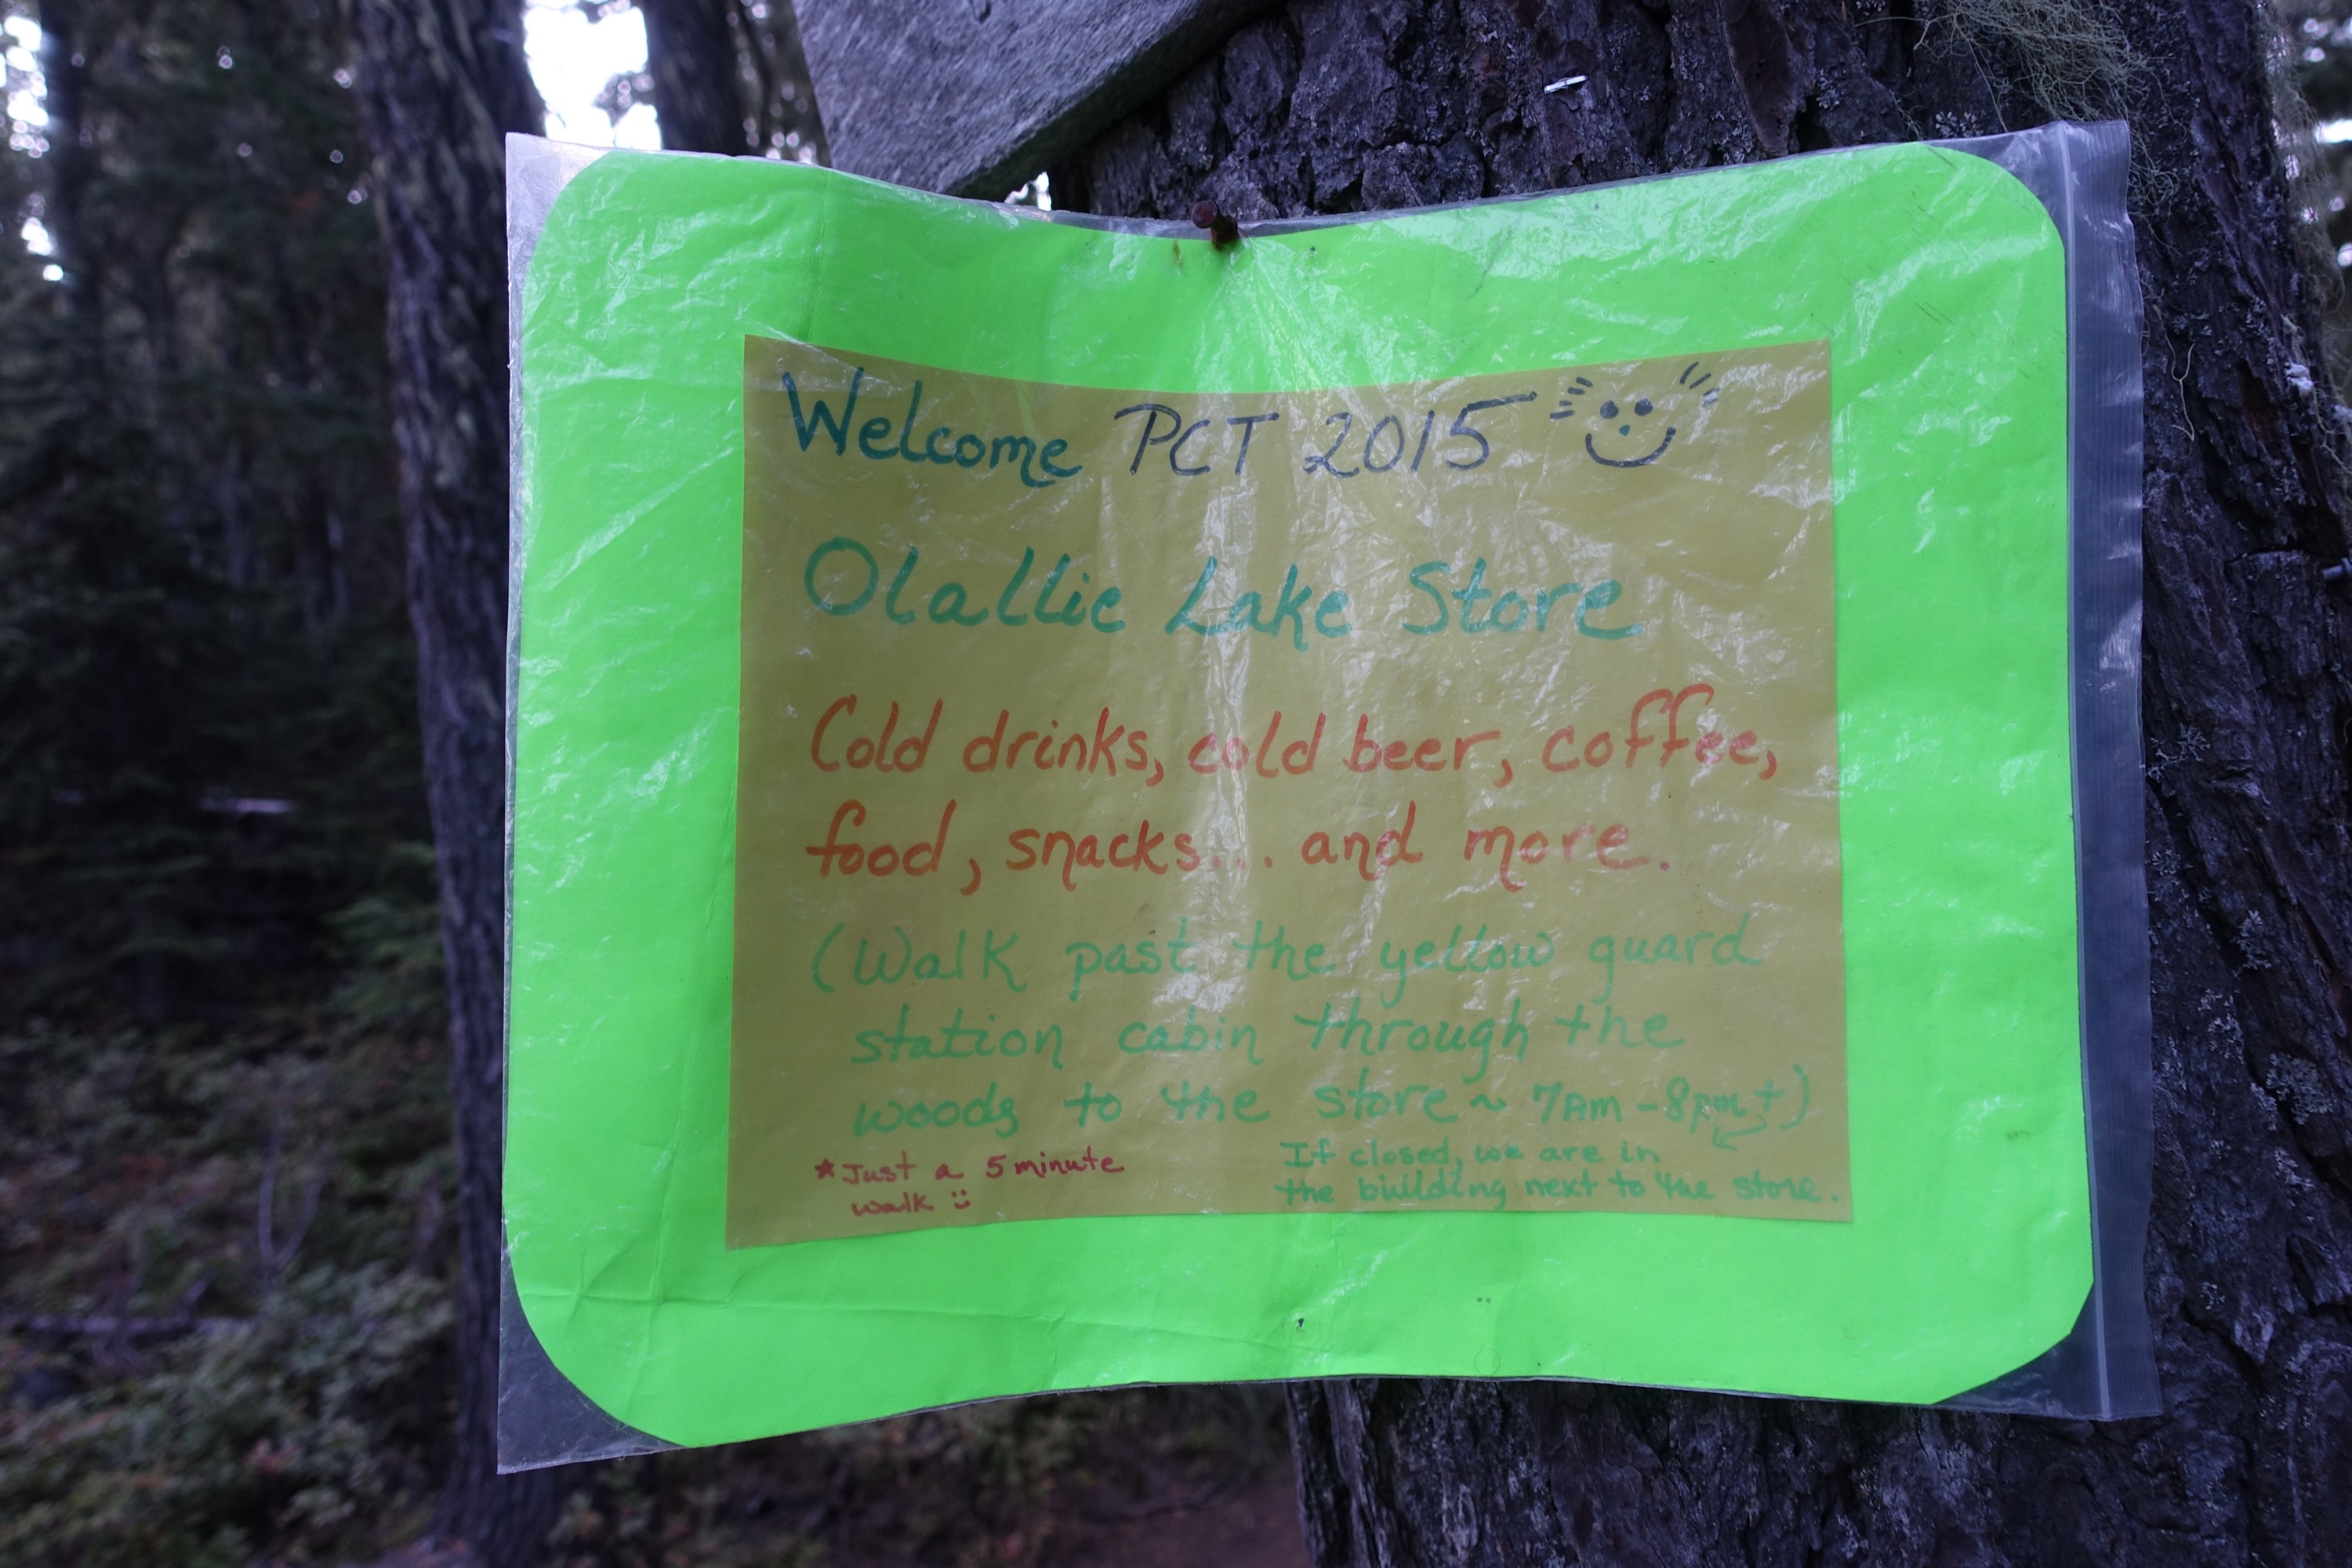 Welcome PCT 2015
Olallie Lake Store
Cold drinks, cold beer, coffee,
food, snacks... and more.
(Walk past the yellow guard
station cabin through the
woods to the store ~ 7Am - 8pm+)
*Just a 5 minute
walk
If closed, we are in
the building next to the store.